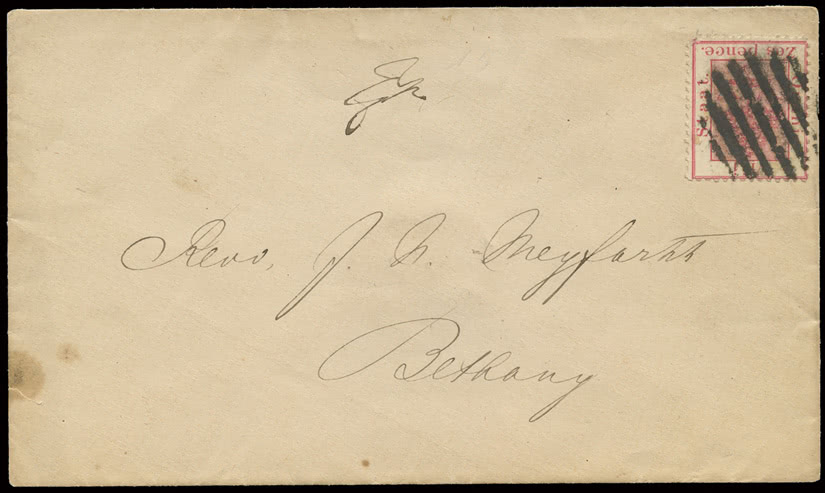 Zes pence.
Staat.
Revd. J. N. Meyfarth
Bethany